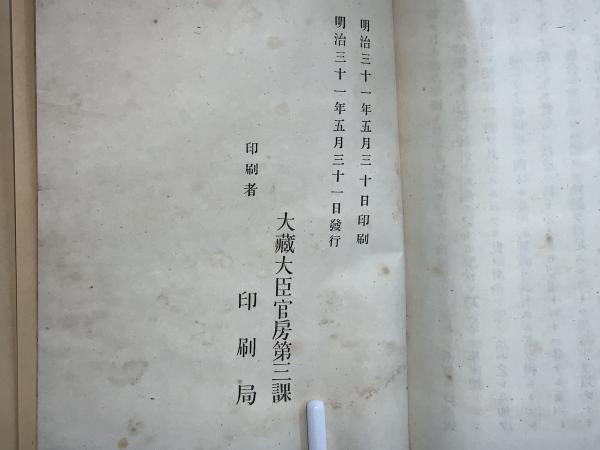 明治三十一年五月三十日印刷
明治三十一年五月三十一日發行
大藏大臣官房第三課
印刷者
印刷局